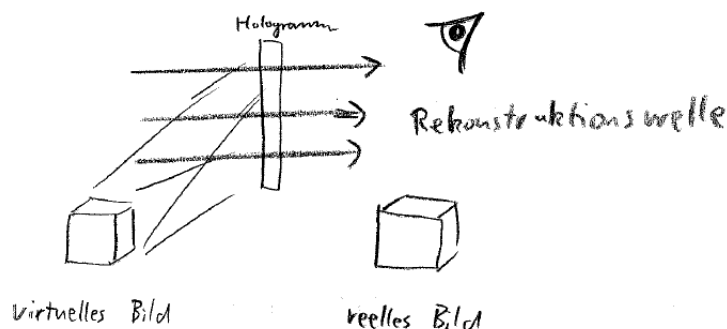 Hologramm
Rekonstruktionswelle
virtuelles Bild
reelles Bild